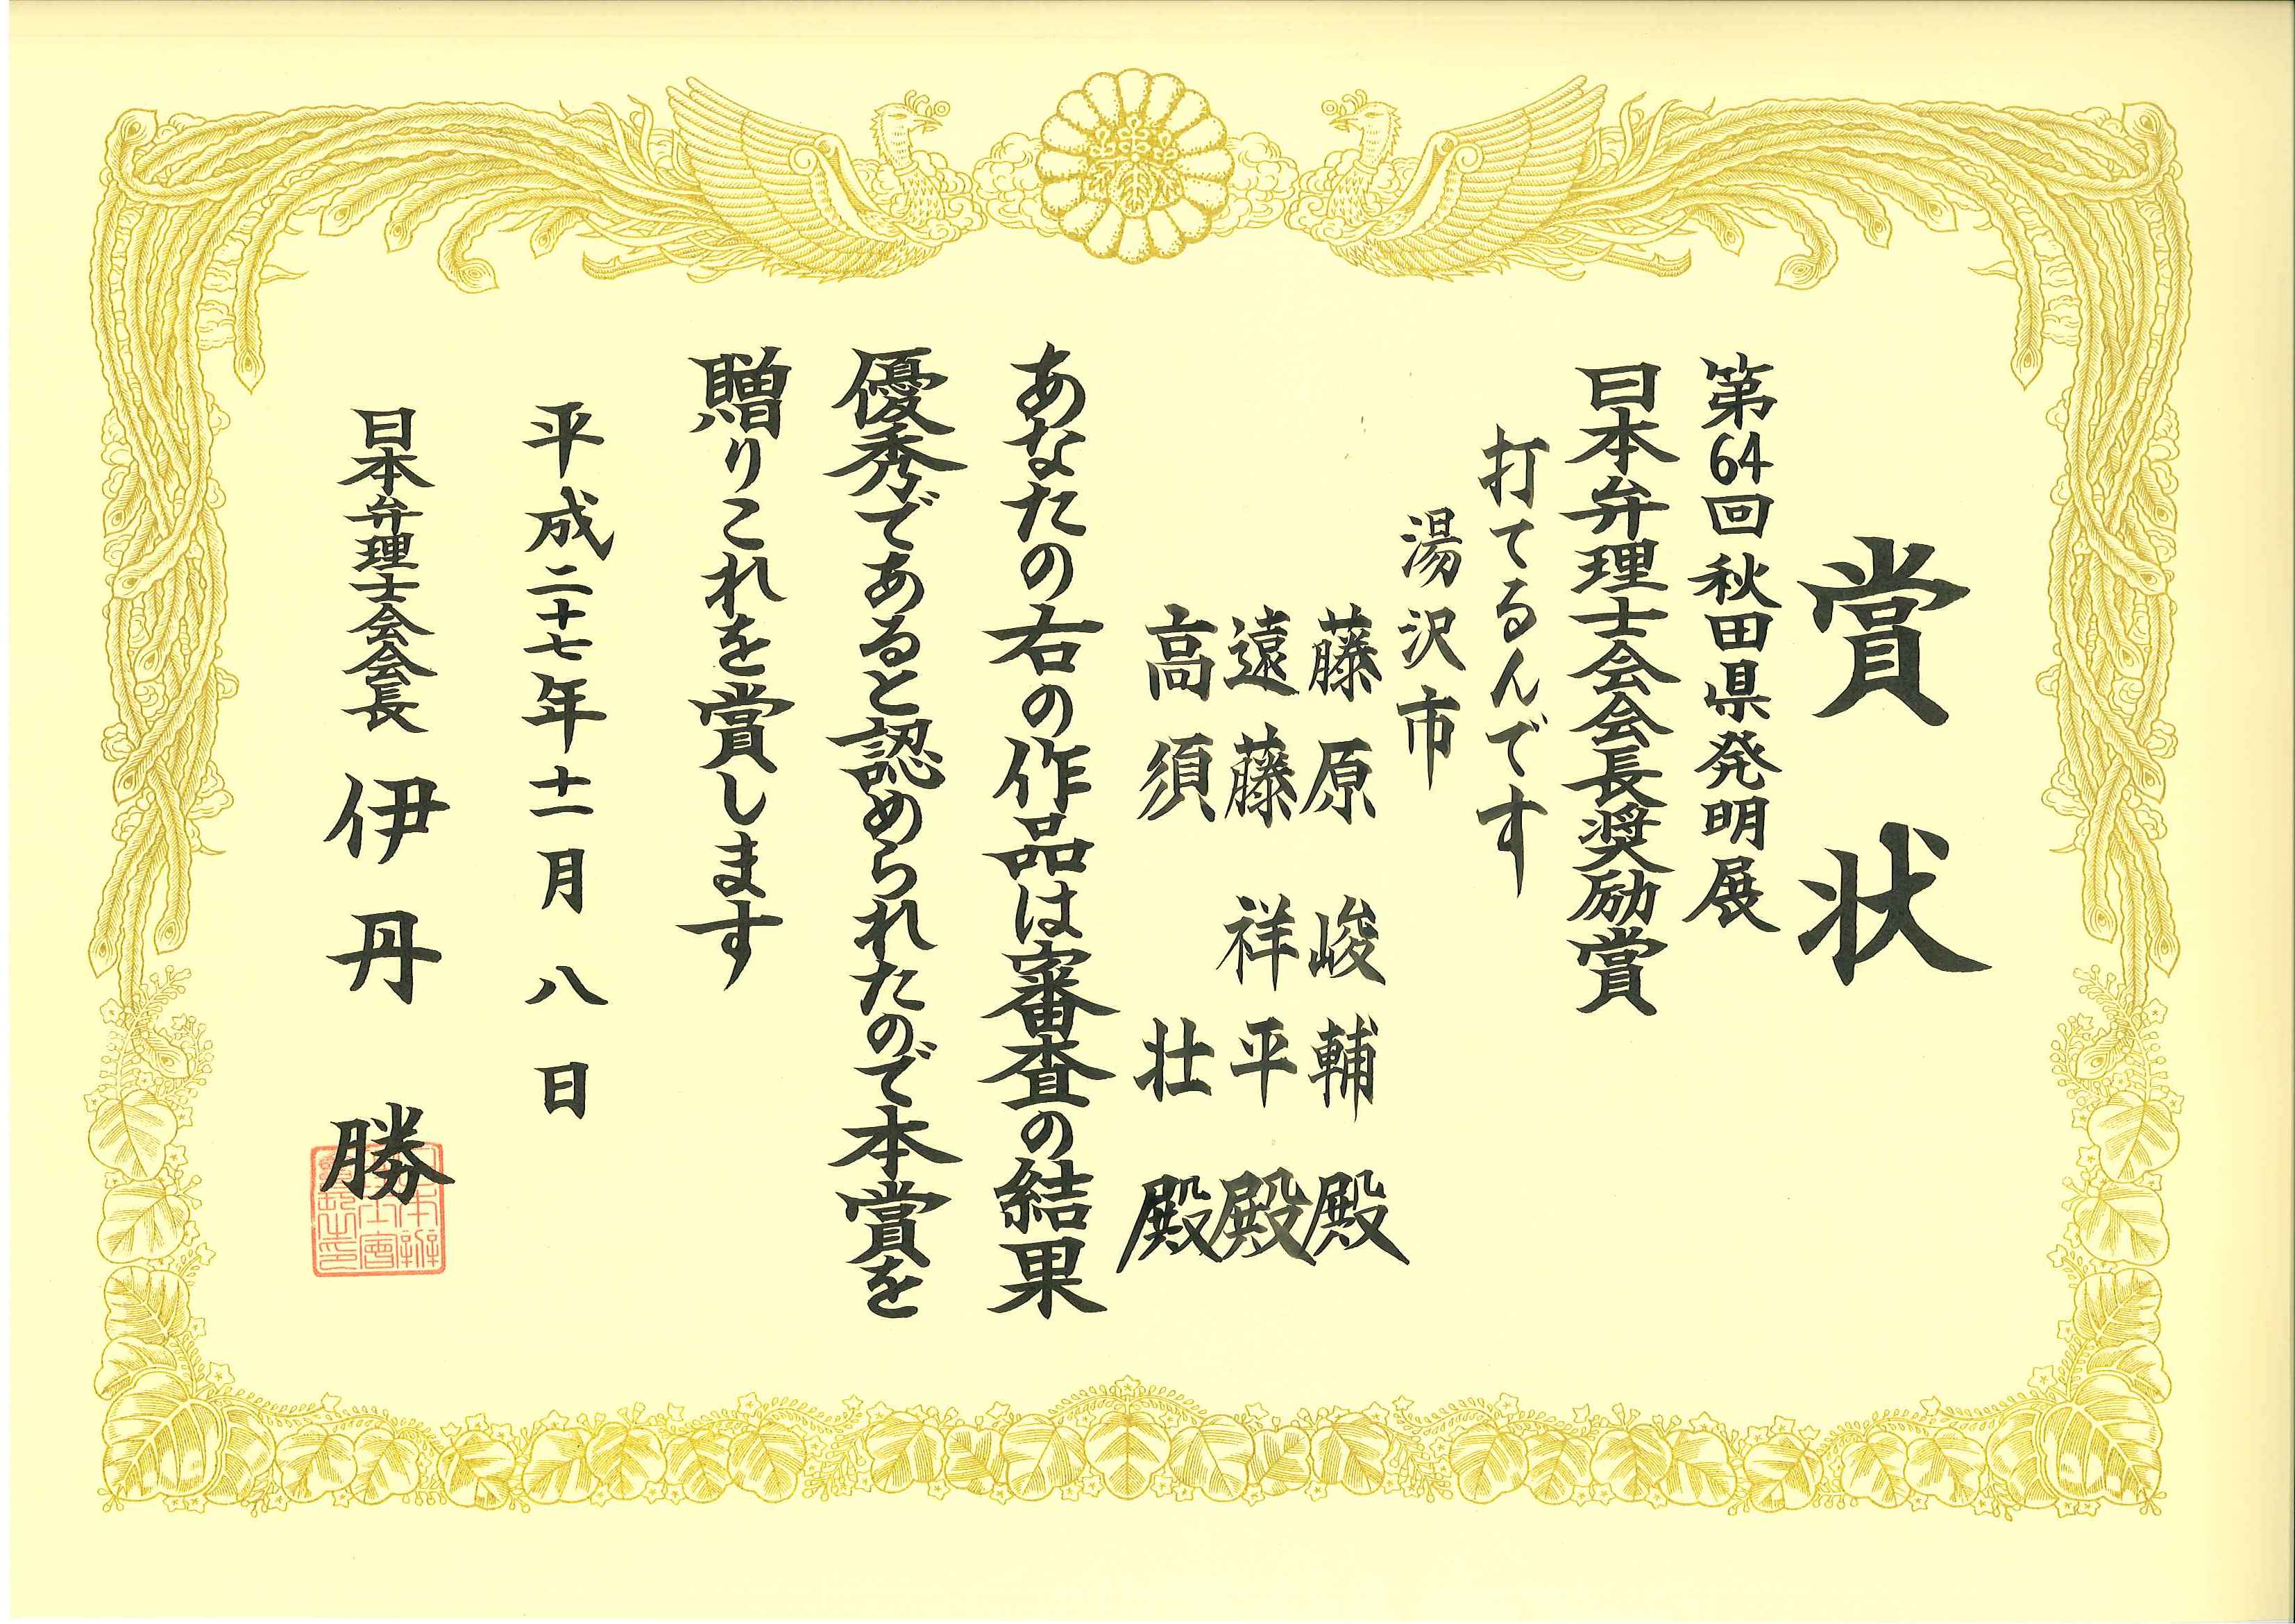 賞状
第64回秋田県発明展
日本弁理士会会長奨励賞
打てるんです
湯沢市
藤原峻輔殿
遠藤祥平殿
高須壮殿
あなたの右の作品は審査の結果
優秀であると認められたので本賞を
贈りこれを賞します
平成二十七年十一月八日
日本弁理士会会長 伊丹勝